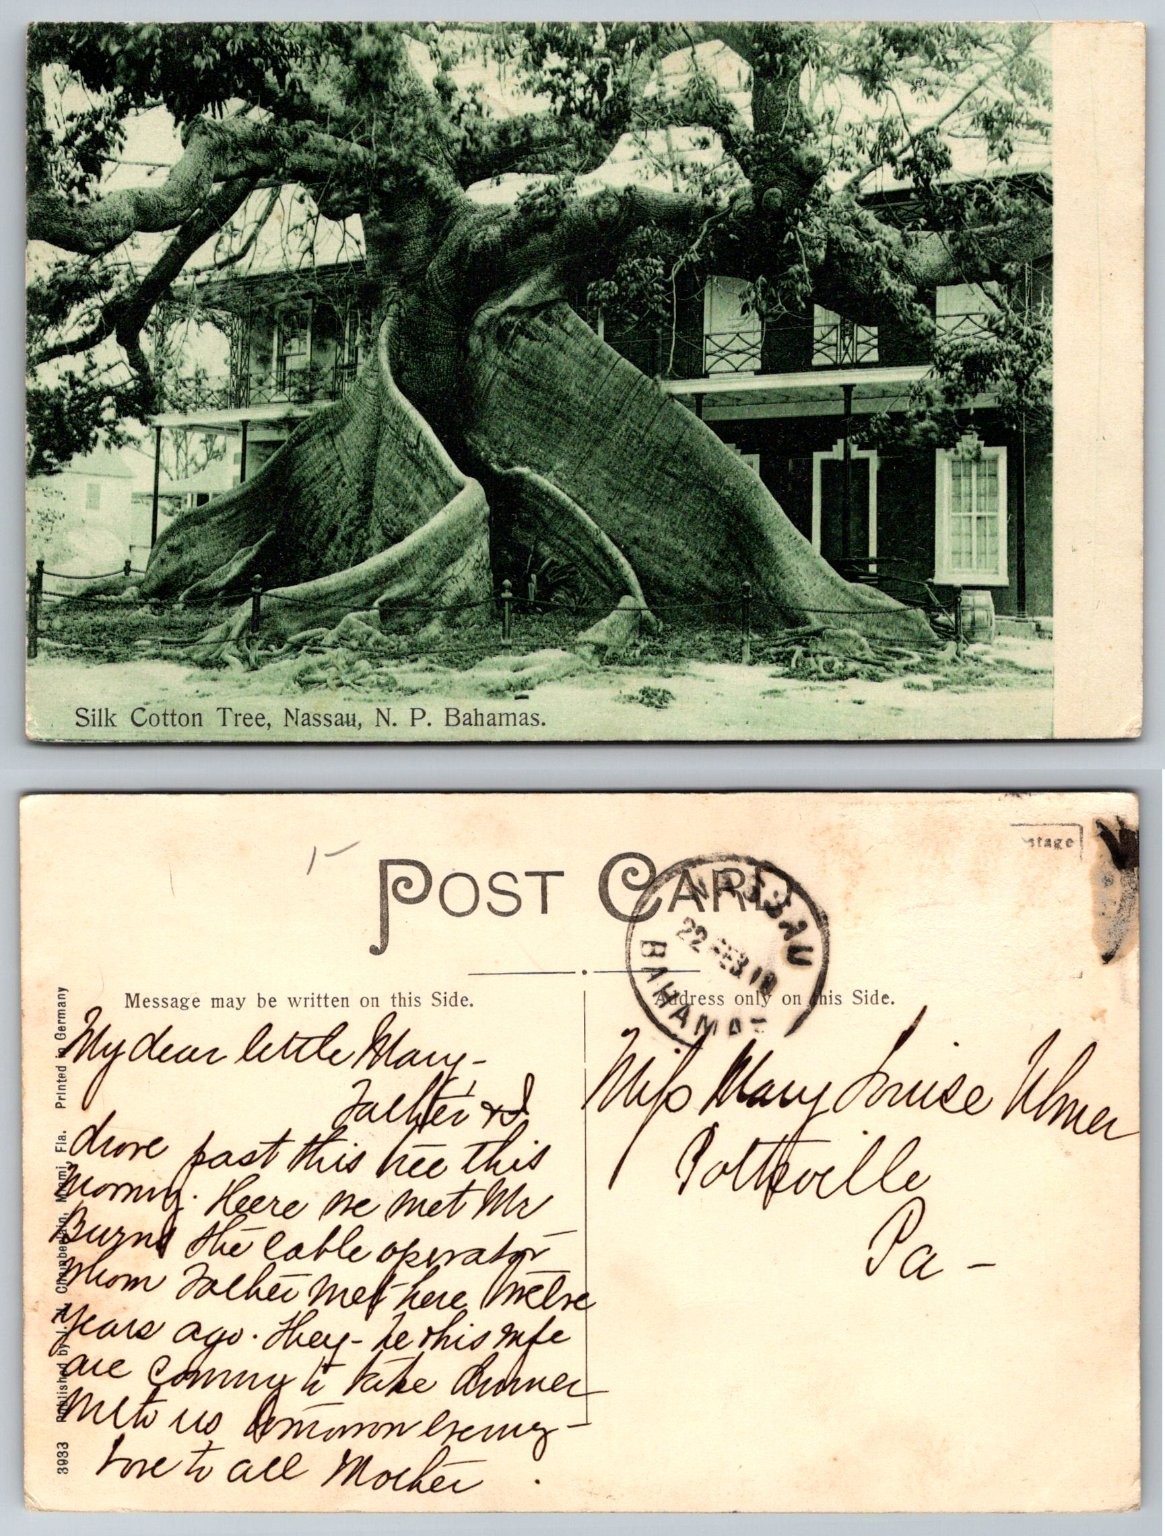 Silk Cotton Tree, Nassau, N. P. Bahamas.
POST CARD
stage
NASSAU
22 FEB 10
BAHAMAS
Message may be written on this Side.
Address only on this Side.
3983 Published by J. N. Chamberlain, Miami, Fla. Printed in Germany
My dear little Mary-
Father & I
drove past this tree this
morning. Heere we met Mr
Burns the cable operator
whom Father met here twelve
years ago. They- he & his wife
are coming to take dinner
with us tomorrow evening-
Love to all Mother
Miss Mary Louise Ulmer
Pottsville
Pa-